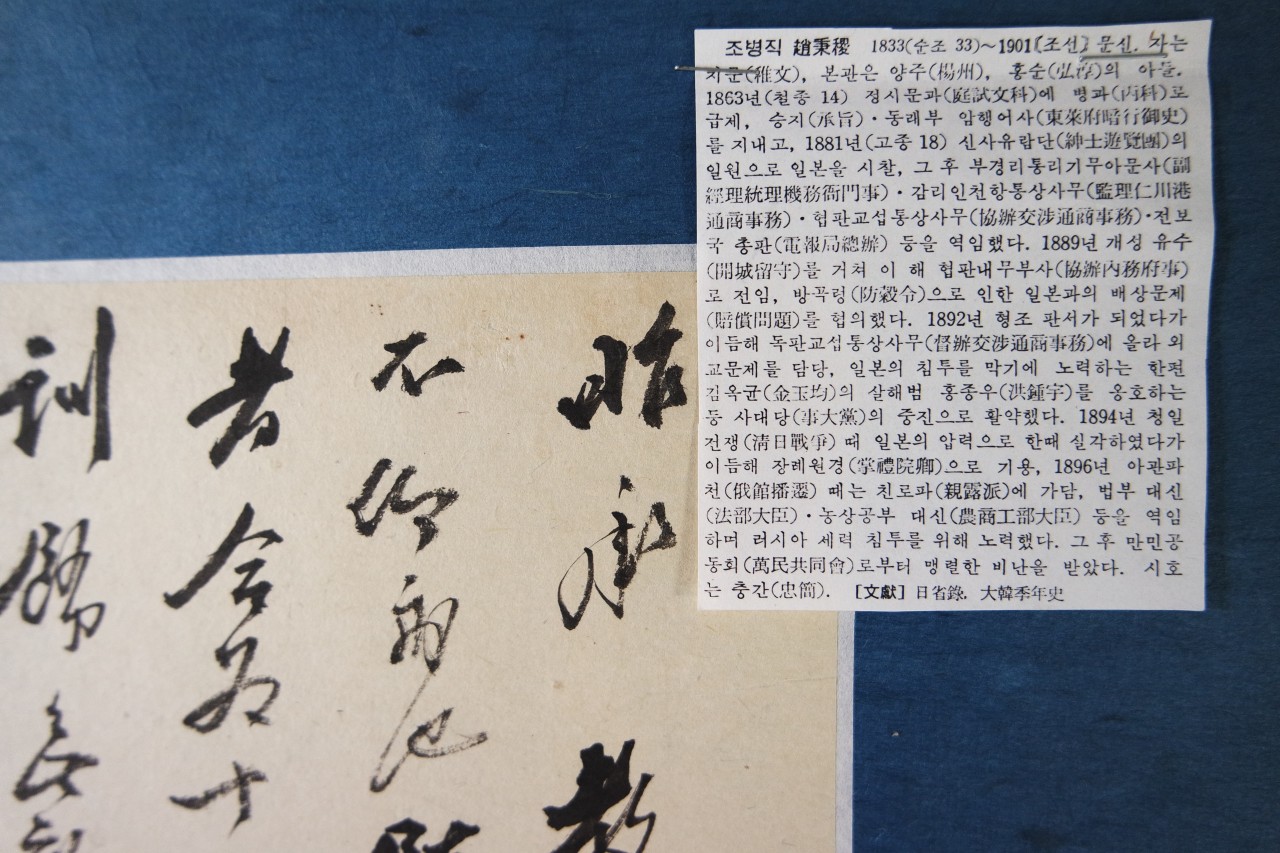 조병직 趙秉稷 1833(순조 33)~1901〔조선〕 문신. 자는
치문(稚文), 본관은 양주(楊州), 홍순(弘淳)의 아들.
1863년(철종 14) 정시문과(庭試文科)에 병과(丙科)로
급제, 승지(承旨)·동래부 암행어사(東萊府暗行御史)
를 지내고, 1881년(고종 18) 신사유람단(紳士遊覽團)의
일원으로 일본을 시찰, 그 후 부경리통리기무아문사(副
經理統理機務衙門事)·감리인천항통상사무(監理仁川港
通商事務)·협판교섭통상사무(協辦交涉通商事務)·전보
국 총판(電報局總辦) 등을 역임했다. 1889년 개성 유수
(開城留守)를 거쳐 이 해 협판내무부사(協辦內務府事)
로 전임, 방곡령(防穀令)으로 인한 일본과의 배상문제
(賠償問題)를 협의했다. 1892년 형조 판서가 되었다가
이듬해 독판교섭통상사무(督辦交涉通商事務)에 올라 외
교문제를 담당, 일본의 침투를 막기에 노력하는 한편
김옥균(金玉均)의 살해범 홍종우(洪鍾宇)를 옹호하는
등 사대당(事大黨)의 중진으로 활약했다. 1894년 청일
전쟁(淸日戰爭) 때 일본의 압력으로 한때 실각하였다가
이듬해 장례원경(掌禮院卿)으로 기용, 1896년 아관파
천(俄館播遷) 때는 친로파(親露派)에 가담, 법부 대신
(法部大臣)·농상공부 대신(農商工部大臣) 등을 역임
하며 러시아 세력 침투를 위해 노력했다. 그 후 만민공
동회(萬民共同會)로부터 맹렬한 비난을 받았다. 시호
는 충간(忠簡). [文獻] 日省錄. 大韓季年史
昨承 教
不
者 合 十
訓